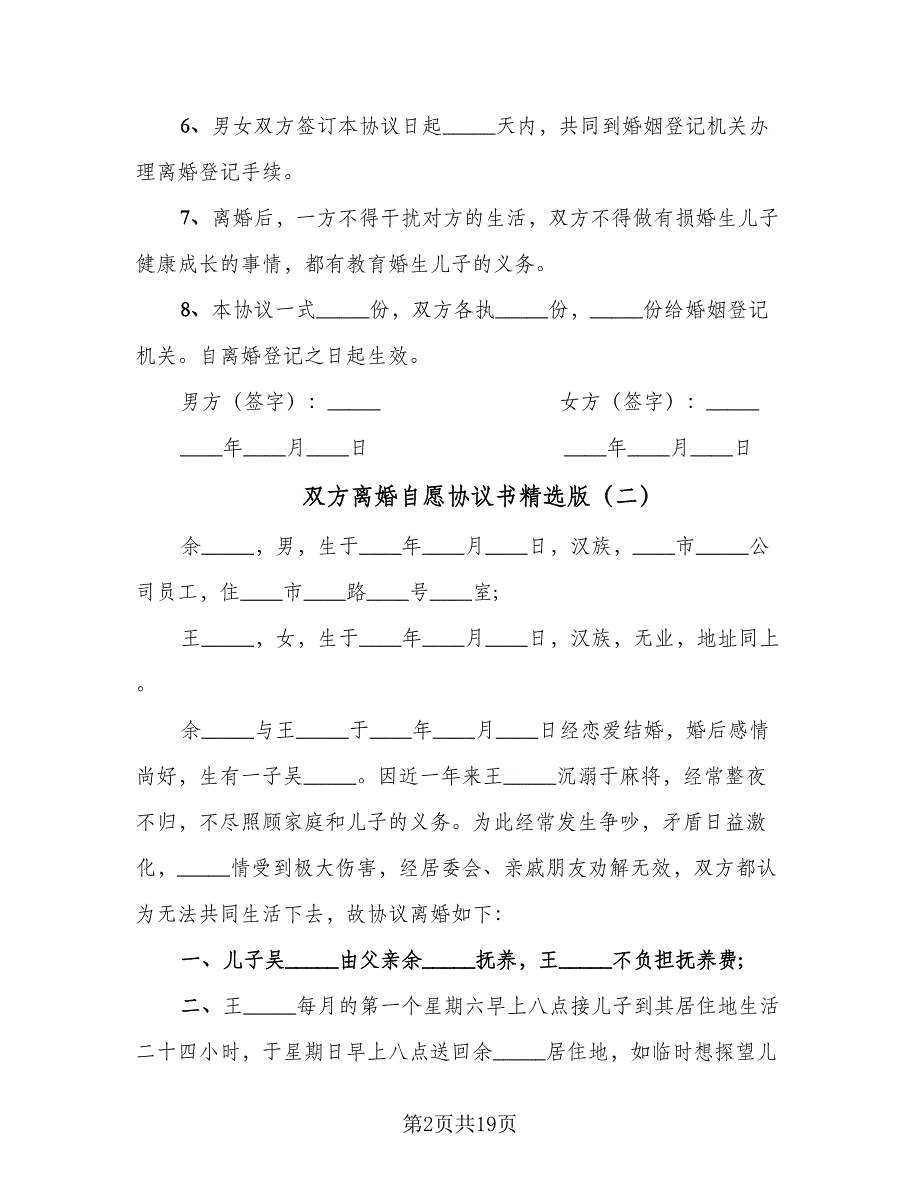 6、男女双方签订本协议日起_____天内，共同到婚姻登记机关办
理离婚登记手续。
7、离婚后，一方不得干扰对方的生活，双方不得做有损婚生儿子
健康成长的事情，都有教育婚生儿子的义务。
8、本协议一式_____份，双方各执_____份，_____份给婚姻登记
机关。自离婚登记之日起生效。
男方（签字）：_____ 女方（签字）：_____
____年____月____日 ____年____月____日
双方离婚自愿协议书精选版（二）
余_____，男，生于____年____月____日，汉族，____市_____公
司员工，住____市____路____号____室;
王_____，女，生于____年____月____日，汉族，无业，地址同上
。
余_____与王_____于____年____月____日经恋爱结婚，婚后感情
尚好，生有一子吴_____。因近一年来王_____沉溺于麻将，经常整夜
不归，不尽照顾家庭和儿子的义务。为此经常发生争吵，矛盾日益激
化，_____情受到极大伤害，经居委会、亲戚朋友劝解无效，双方都认
为无法共同生活下去，故协议离婚如下：
一、儿子吴_____由父亲余_____抚养，王_____不负担抚养费;
二、王_____每月的第一个星期六早上八点接儿子到其居住地生活
二十四小时，于星期日早上八点送回余_____居住地，如临时想探望儿
第2页共19页